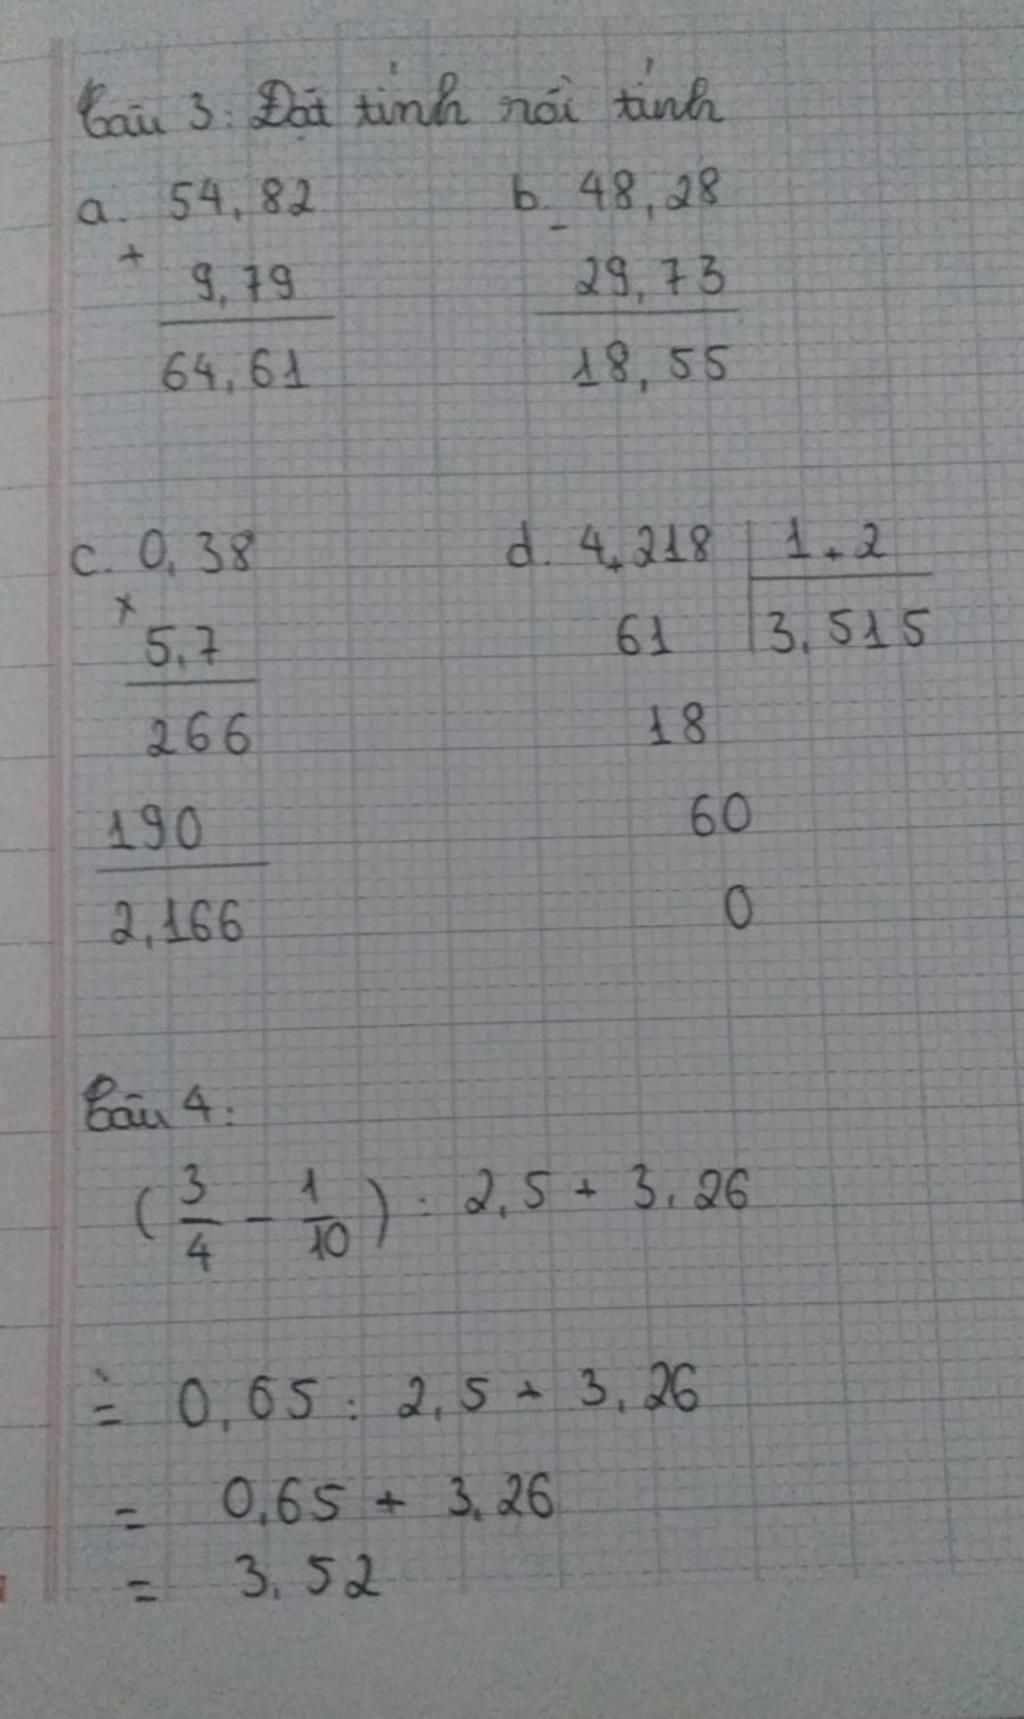 Câu 3: Đặt tính rồi tính
a. 54,82 b. 48,28
+ -
9,79 29,73
64,61 18,55
c. 0,38 d. 4,218 1,2
x
5,7 61 3,515
266 18
190 60
2,166 0
Câu 4:
(3/4 - 1/10) : 2,5 + 3,26
= 0,65 : 2,5 + 3,26
= 0,65 + 3,26
= 3,52